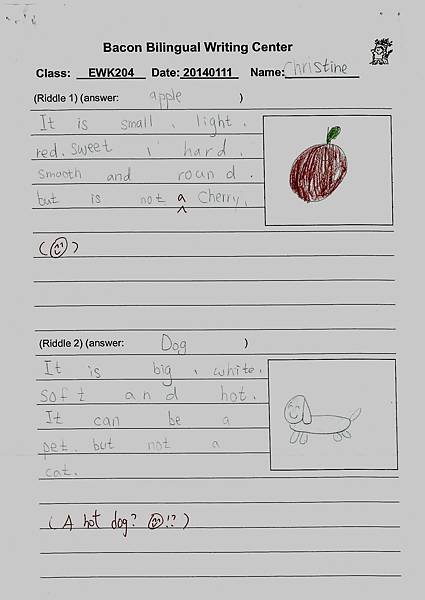 Bacon Bilingual Writing Center
Class: EWK204 Date: 20140111 Name: Christine
(Riddle 1) (answer: apple )
It is small, light,
red, sweet, hard,
smooth and round.
but is not a Cherry.
( )
(Riddle 2) (answer: Dog )
It is big, white,
soft and hot.
It can be a
pet. but not a
cat.
( A hot dog? !? )